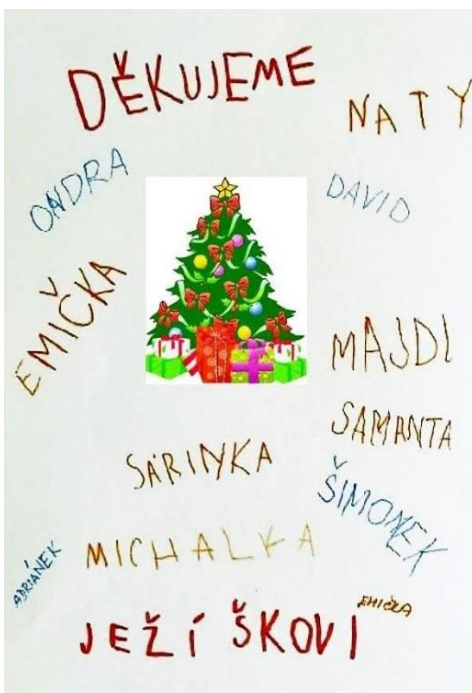 DĚKUJEME
NATY
ONDRA
DAVID
EMIČKA
MAJDI
SAMANTA
SÁRINKA
ŠIMONEK
ADRIÁNEK
MICHALKA
EMIČKA
JEŽÍŠKOVI